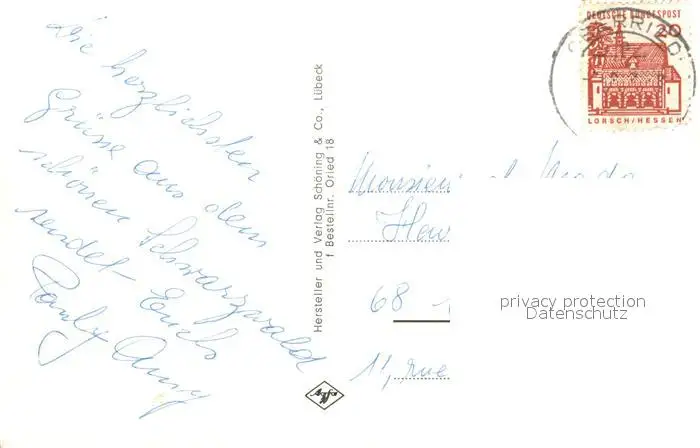 Die herzlichsten
Grüße aus dem
schönen Schwarzwald
sendet Euch
Hersteller und Verlag Schöning & Co., Lübeck
f Bestellnr. Oried 18
Agfa
DEUTSCHE BUNDESPOST
20
LORSCH/HESSEN
OBERRIED
Monsieur et
68
11, rue
privacy protection
Datenschutz